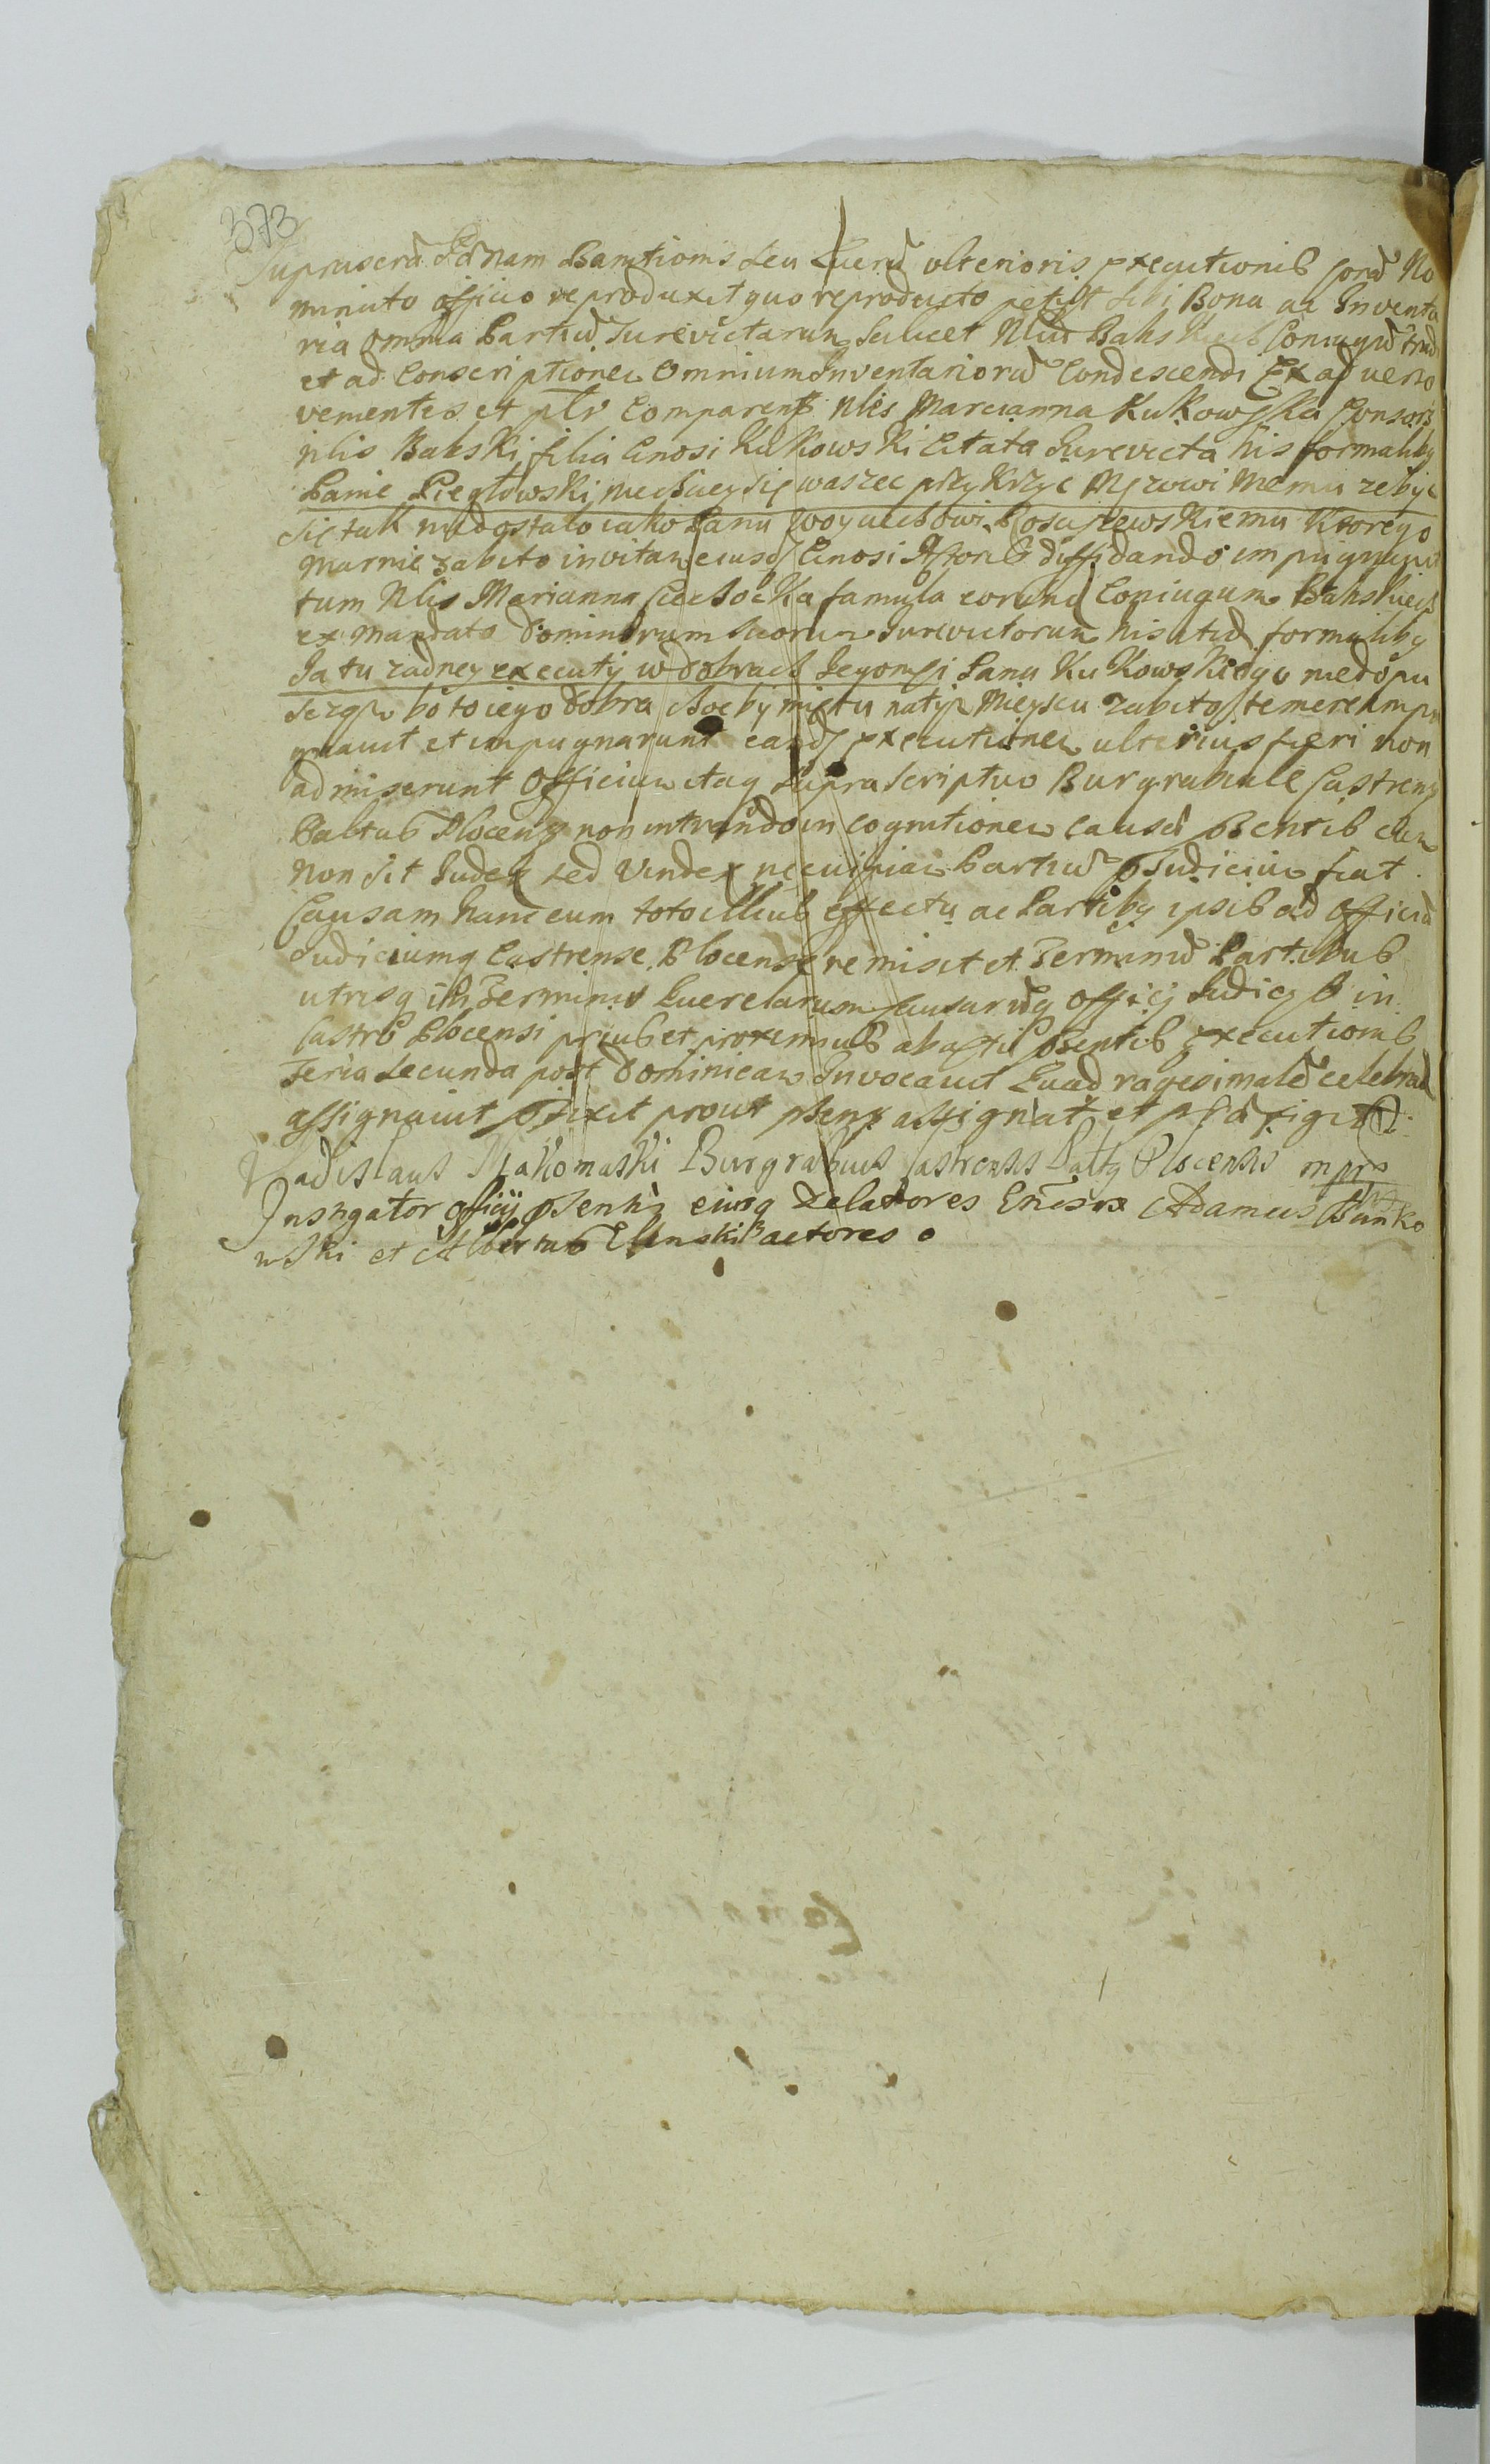 373
Suprascrã Banitionis seu ulterioris executionis corã No
minato officio reproduxit quo reproducto petijt sibi Bona ac Inventa
ria omnia Partiũ Iurevictarum scilicet Nliũ Conĩugũ
et ad Conscriptionem Omnium Inventariorũ Condescendi Ex aduerso
venientes et Comparens Nlis Marcianna Kukowska Consors
Nlis Bakski filia Gnosi Kukowski Citata Iurevicta his formalibq
Panie Piegłowski niechciey się waszec przykrzyc Męzowi Memu zebyc
się tak niedostało iako Panu Woyciechowi Kosaszewskiemu Ktorego
Marnie zabito invitam eiusd Gnosi Actoris diffidando impugnavit
tum Nlis Marianna famula eorund Coniugum
ex Mandato Dominorum suorum Iurevictorum his itid formalibq
Ia tu zadney executy w dobrach Iegomsci Pana Kukowskiego niedopu
szczę bo to iego dobra choc by mię tu natym Mieyscu zabito temere impu
gnavit et impugnarunt eand executionem ulterius fieri non
admiserunt Officium itaq supra scriptum Burgrabiale Castrens
Paltus Plocens non intrando in cognitionem causæ pñtis cum
non sit Iudex sed Vindex Partiũ pĩudicium fiat
Causam hanc cum toto illius effectu ac Partibq ipsis ad Officiũ
Iudiciumq Castrense Plocense remisit et Terminũ Partibus
utrisq in Terminis Querelarum Causarũq Officij Iudicij in
Castro Plocensi prius et proximius ab actu pñtis Executionis
Feria Secunda post Dominicam Invocavit Quadragesimalẽ celebrand
assignavit prout pñens assignat et præfigit
Vladislaus Makomaski Burgrabius Castrensis Paltq Plocensis mpp
Instigator officij pñentis eiusq Delatores Gñsos Adamus Bunko
wski et Albertus Elinski actores